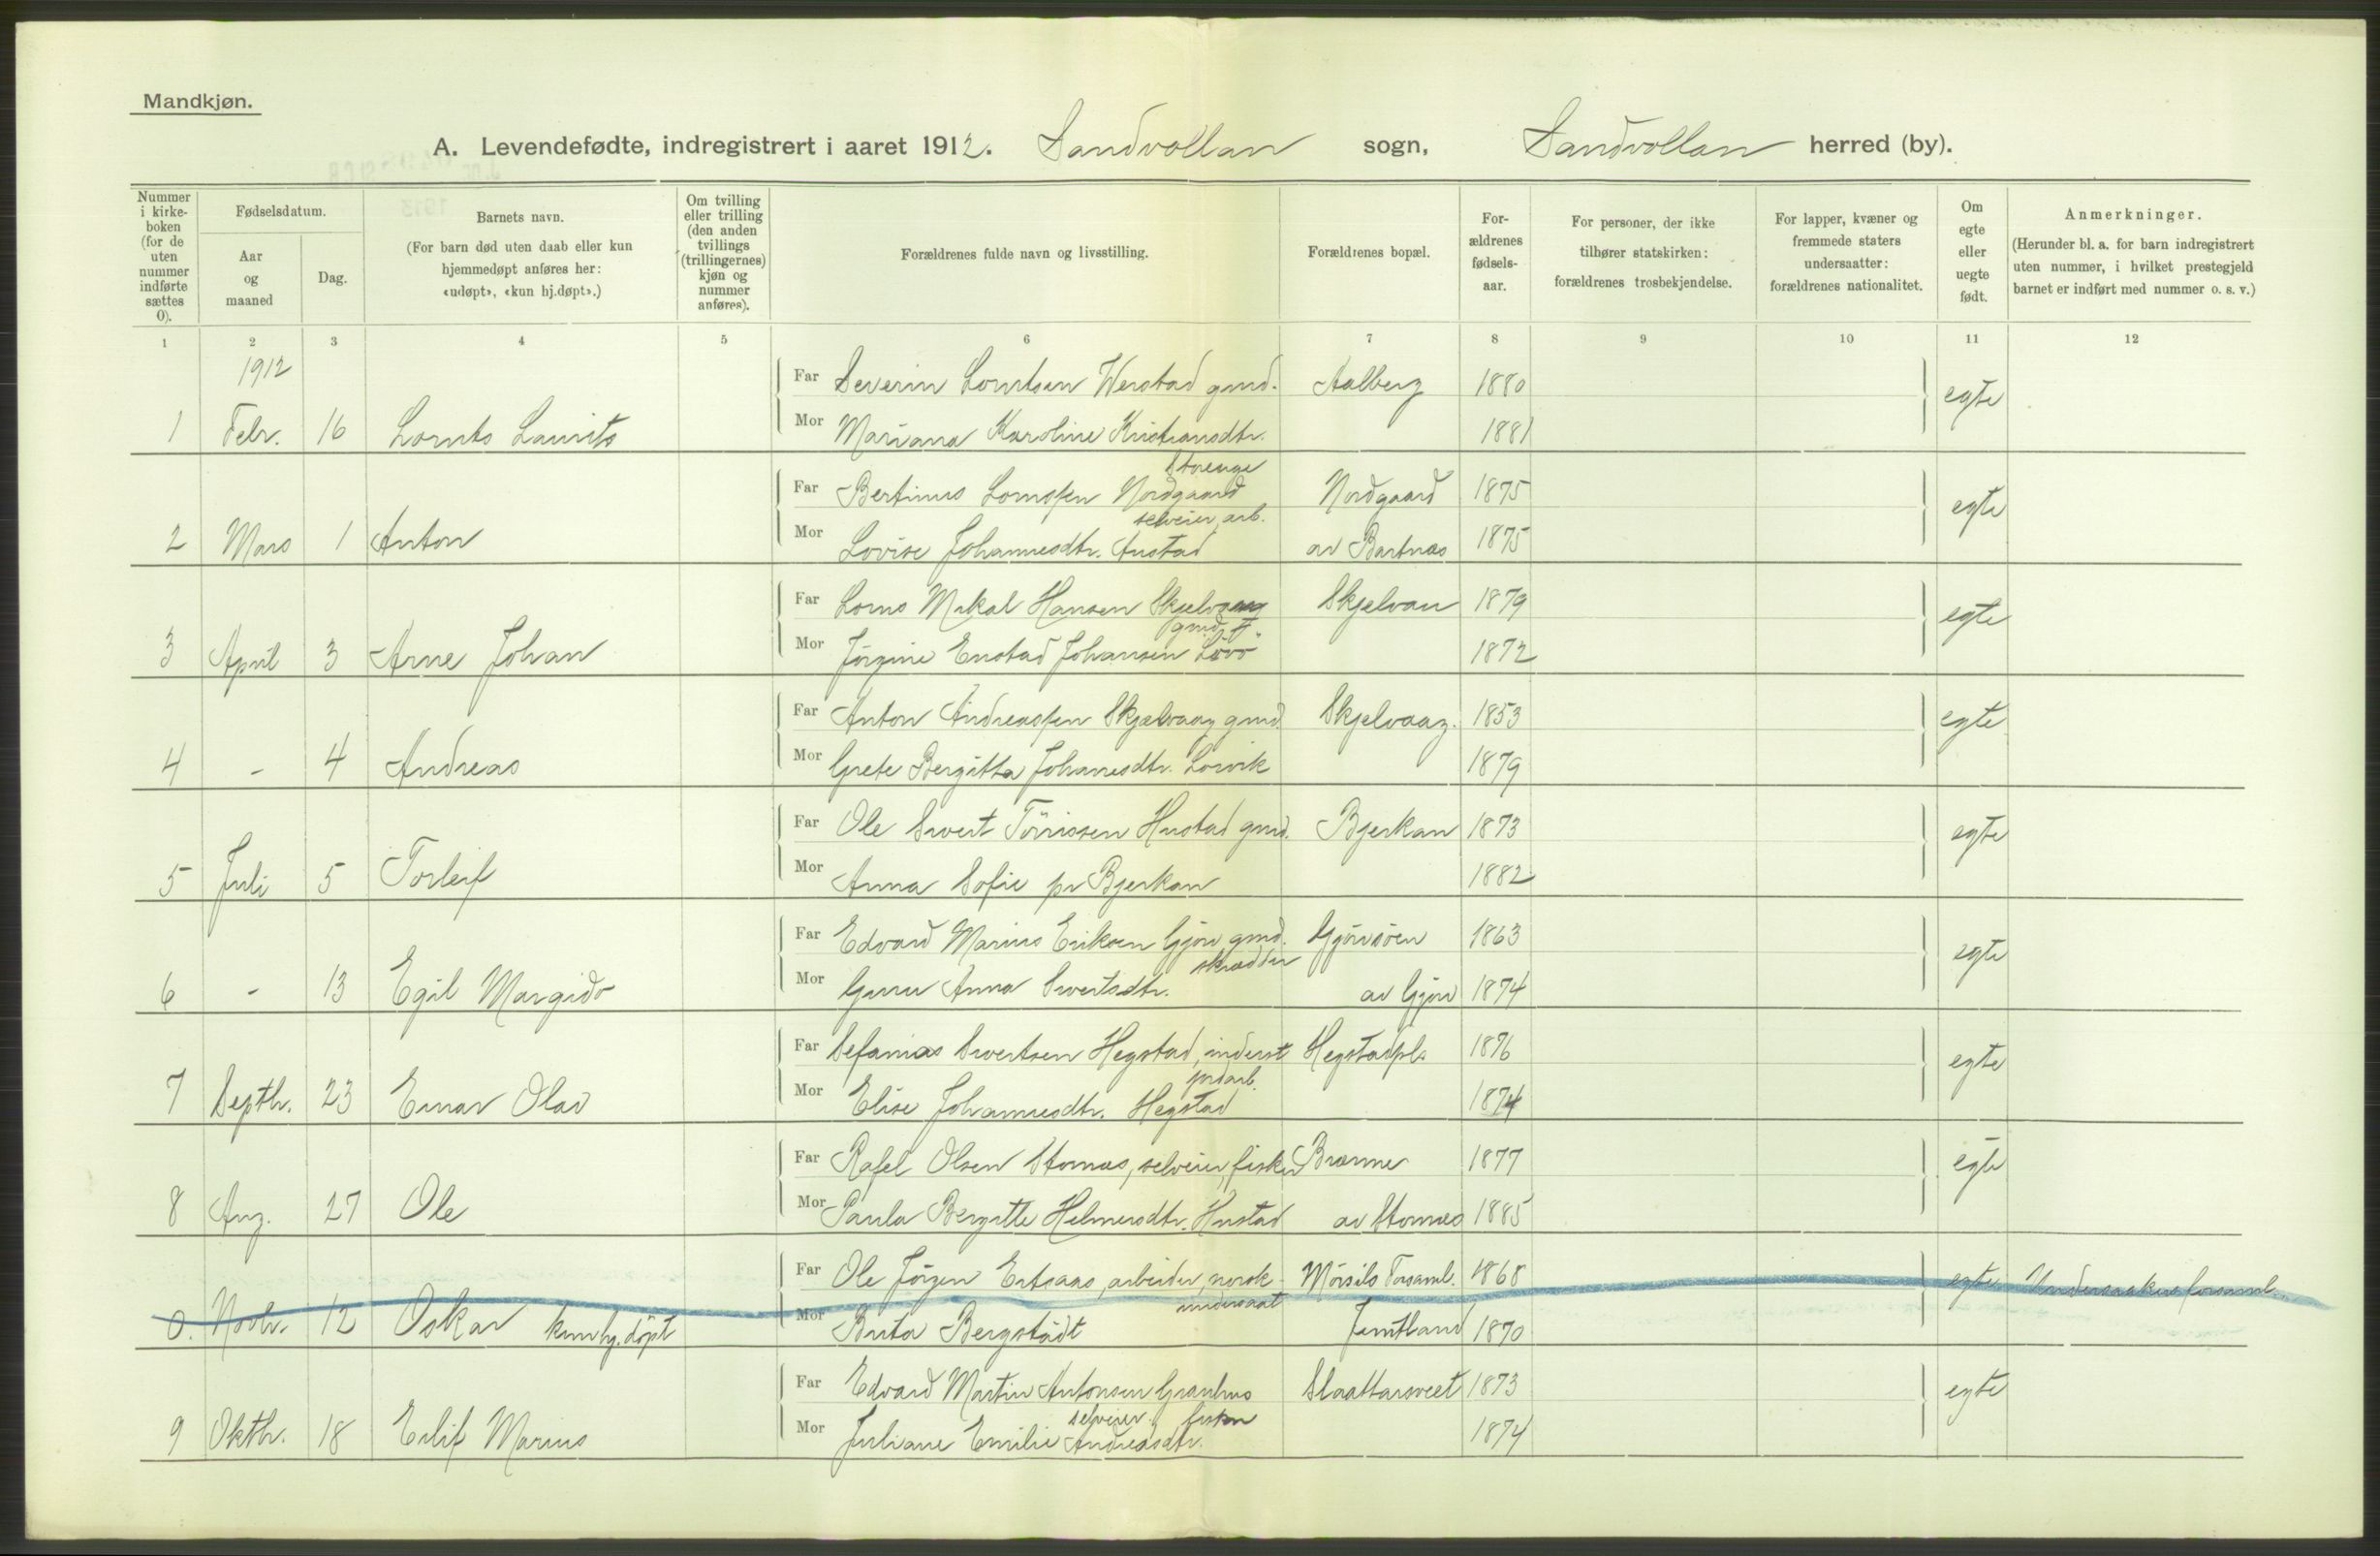 Mandkjøn.
A. Levendefødte, indregistrert i aaret 1912. Sandvollan sogn, Sandvollan herred (by).
Nummer i kirke-boken (for de uten nummer indførte sættes 0).
Fødselsdatum.
Aar og maaned
Dag.
Barnets navn.
(For barn død uten daab eller kun hjemmedøpt anføres her: «udøpt», «kun hj.døpt».)
Om tvilling eller trilling (den anden tvillings (trillingernes) kjøn og nummer anføres).
Forældrenes fulde navn og livsstilling.
Forældrenes bopæl.
For-ældrenes fødsels-aar.
For personer, der ikke tilhører statskirken: forældrenes trosbekjendelse.
For lapper, kvæner og fremmede staters undersaatter: forældrenes nationalitet.
Om egte eller uegte født.
Anmerkninger.
(Herunder bl. a. for barn indregistrert uten nummer, i hvilket prestegjeld barnet er indført med nummer o. s. v.)
1 2 3 4 5 6 7 8 9 10 11 12
1912
Far Severin Lorntsen Werstad gmd. Aalberg 1880 egte
1 Febr. 16 Lornts Laurits Mor Mariana Karoline Kristiansdtr. 1881
Storenge
Far Bertinus Lornssen Nordgaard Nordgaard 1875 egte
selveier, arb.
2 Mars 1 Anton Mor Lovise Johannesdtr. Austad av Bartnes 1875
Far Lorns Mikal Hansen Skjelvaag Skjelvan 1879 egte
gmd.
3 April 3 Arne Johan Mor Jörgine Enstad Johansen 1872
Far Anton Andreassen Skjelvaag gmd. Skjelvaag. 1853 egte
4 - 4 Andreas Mor Grete Bergitta Johanesdtr. Lorvik 1879
Far Ole Sivert Törrissen Hustad gmd. Bjerkan 1873 egte
5 Juli 5 Torleif Mor Anna Sofie Bjerkan 1882
Far Edvard Marius Eriksen Gjörv gmd. Gjörvsöen 1863 egte
skrædder
6 - 13 Egil Margido Mor Anna Sivertsdtr. av Gjörv 1874
Far Sefanias Sivertsen Hegstad, inderst Hegstadpl. 1876 egte
jordarb.
7 Septbr. 23 Einar Olav Mor Elise Johannesdtr. Hegstad 1874
Far Rafel Olsen Stornæs, selveier, fisker Brænne 1877 egte
8 Aug. 27 Ole Mor Paula Bergitte Helmersdtr. Hustad av Stornæs 1885
Far Ole Jörgen Ertsaas, arbeider, norsk Mörsils Forsaml. 1868 egte Undersaakers forsaml.
undersaat
0. Novbr. 12 Oskar kun hj. döpt Mor Brita Bergstådt Jemtland 1870
Far Edvard Martin Antonsen Granhus Slaattarsveet 1873 egte
selveier, fisker
9 Oktbr. 18 Erlif Marius Mor Juliane Emilie Andreasdtr. 1874